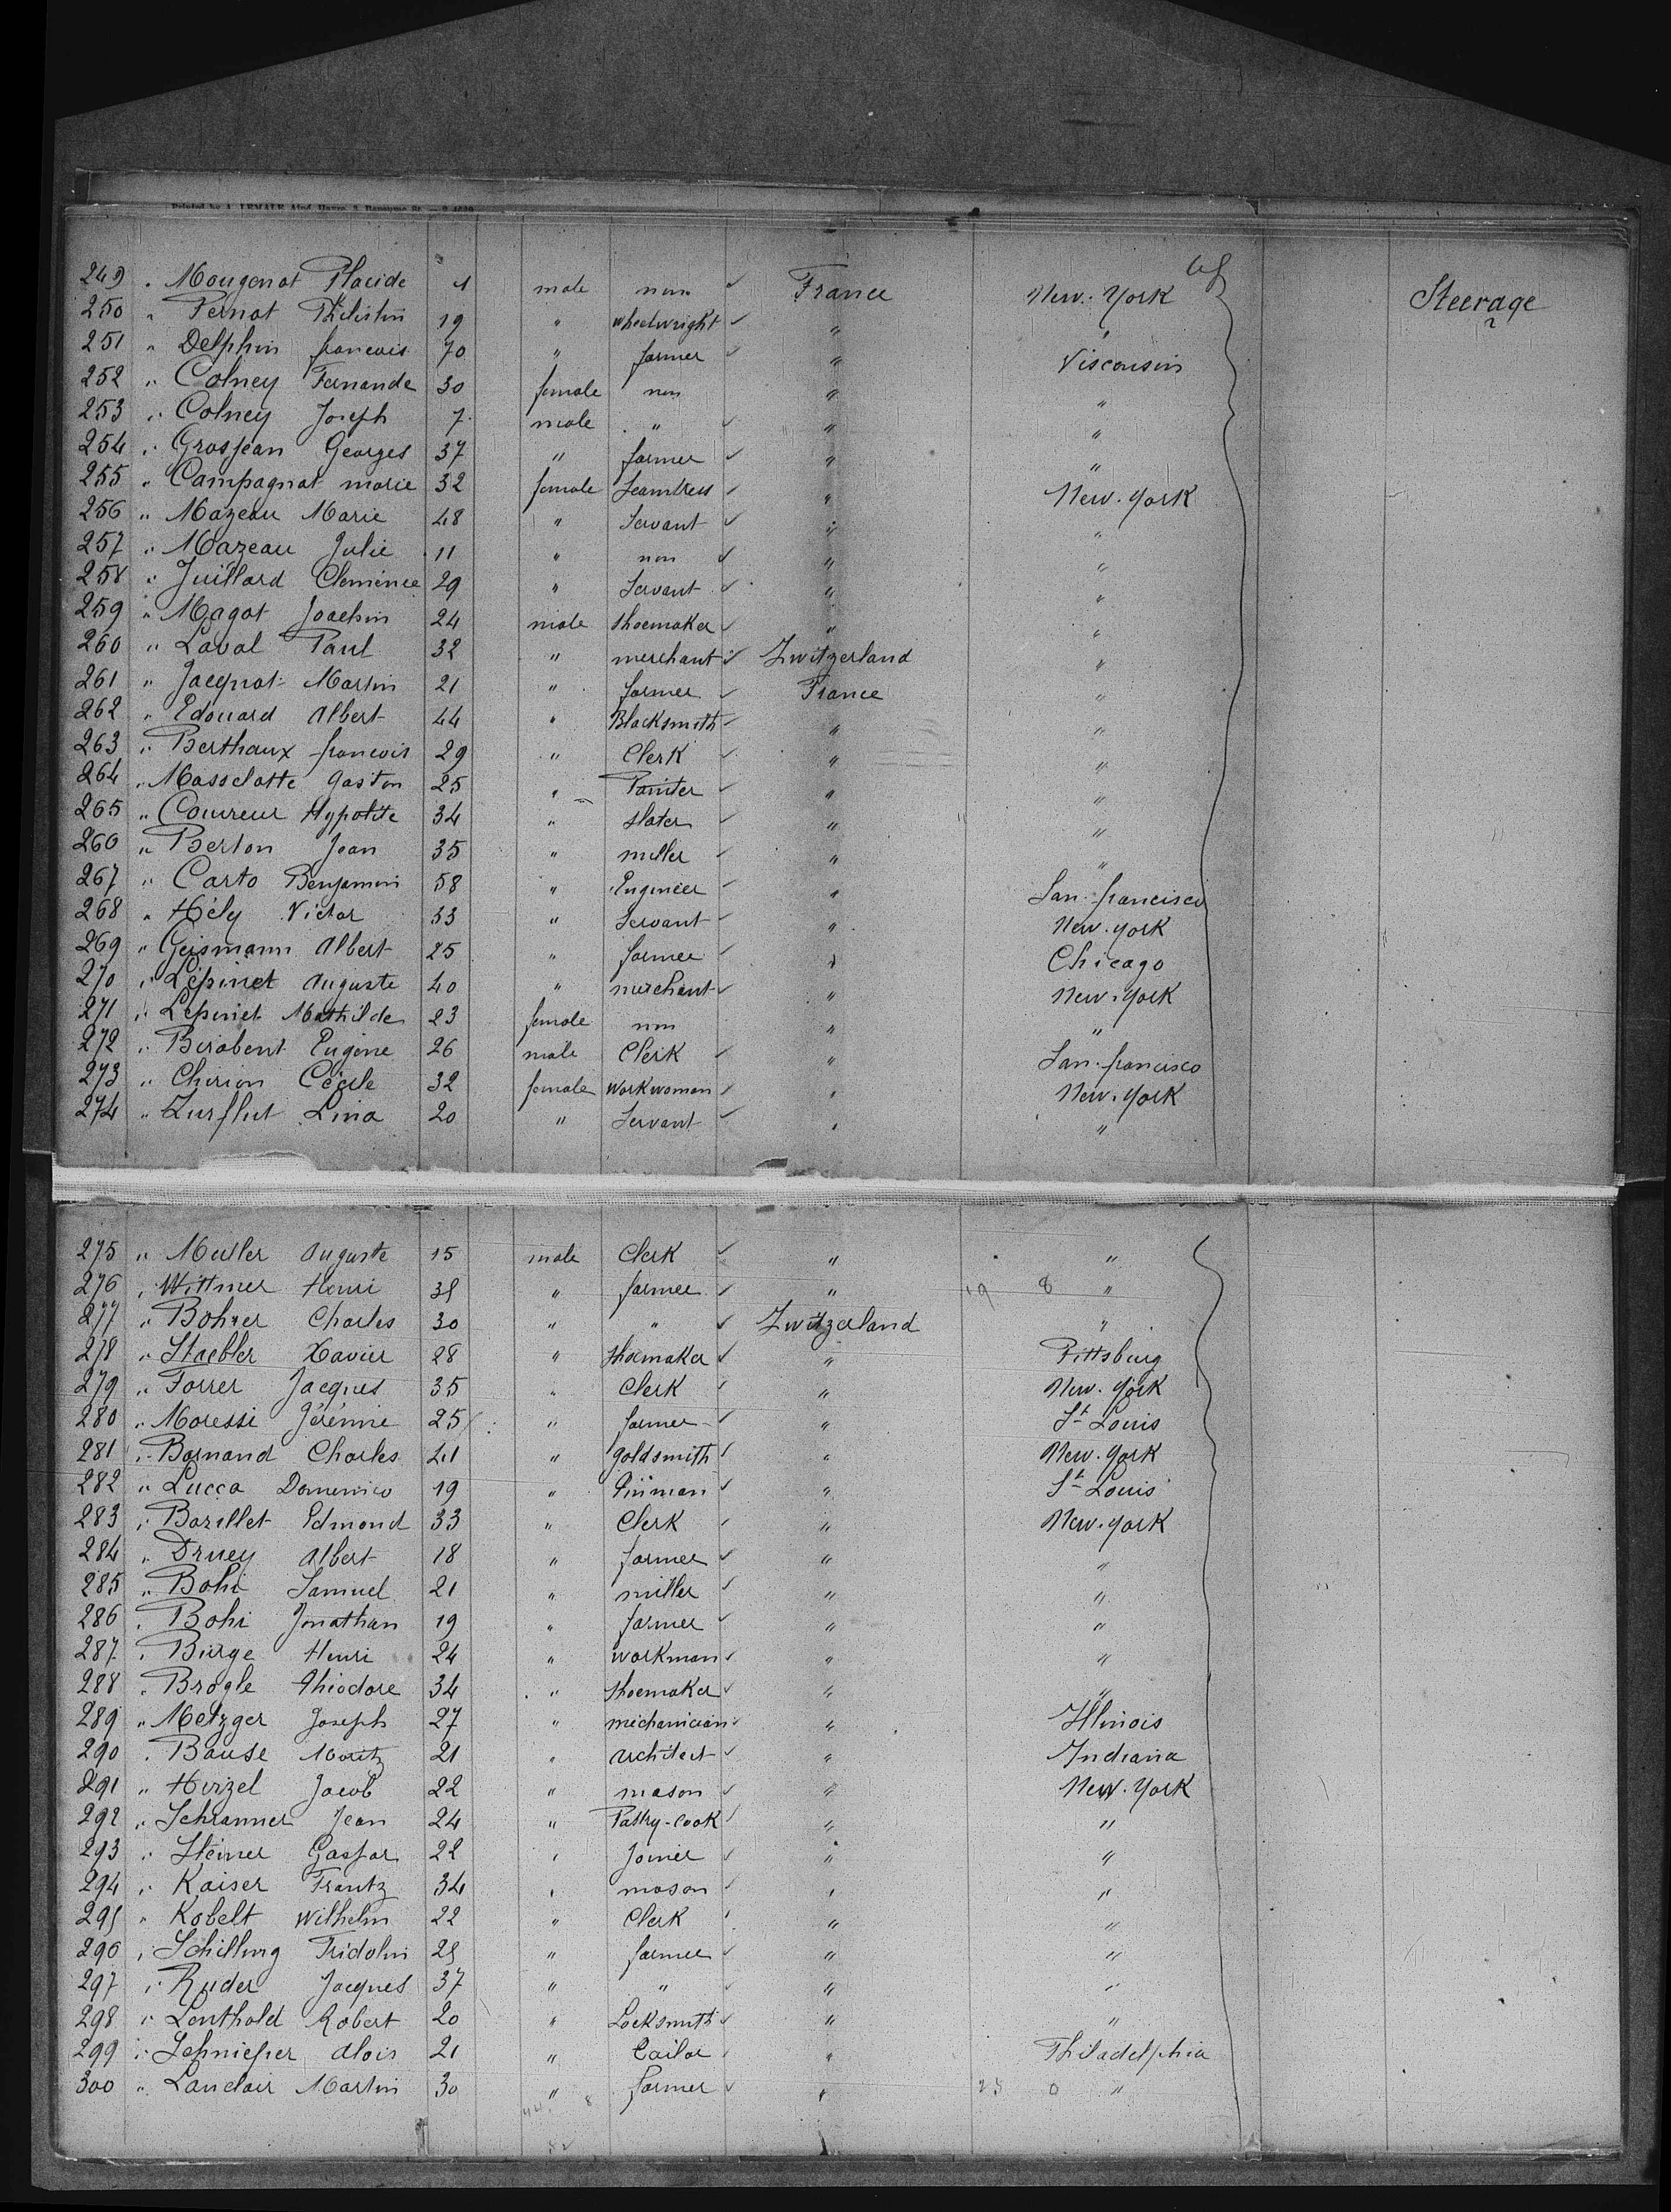 Printed by A. LEMALE Aîné, Havre
249 " Mougenot Placide 1 male non France New-York Steerage
250 " Pernot Philistin 19 " Wheelwright " "
251 " Delphin francois 70 " farmer " Visconsin
252 " Colney Fernande 30 female non " "
253 " Colney Joseph 7 male " " "
254 " Grosjean Georges 37 " farmer " "
255 " Campagnat marie 32 female Seamtress " New-York
256 " Mazeau Marie 48 " Servant " "
257 " Mazeau Julie 11 " non " "
258 " Juillard Clemence 29 " Servant " "
259 " Magot Joachin 24 male Shoemaker " "
260 " Laval Paul 32 " merchant Zwitzerland "
261 " Jacquot Martin 21 " farmer France "
262 " Edouard Albert 44 " Blacksmith " "
263 " Berthaux francois 29 " Clerk " "
264 " Masselotte Gaston 25 " Painter " "
265 " Couvreur Hypolite 34 " Slater " "
260 " Berton Jean 35 " miller " "
267 " Carto Benjamin 58 " Engineer " San-francisco
268 " Hély Victor 33 " Servant " New-york
269 " Geismann Albert 25 " farmer " Chicago
270 " Lépinet Auguste 40 " merchant " New-York
271 " Lépinet Mathilde 23 female non " "
272 " Berabent Eugene 26 male Clerk " San-francisco
273 " Chirion Cécile 32 female Workwoman " New-York
274 " Zurflut Lina 20 " Servant " "
275 " Muller Auguste 15 male Clerk " "
276 " Wittmer Henri 38 " farmer " 19 8 "
277 " Bohrer Charles 30 " " Zwitzerland "
278 " Staebler Xavier 28 " Shoemaker " Pittsburg
279 " Forrer Jacques 35 " Clerk " New-York
280 " Moressi Jérémie 25 " farmer " St Louis
281 " Bornand Charles 41 " goldsmith " New-York
282 " Lucca Domenico 19 " Tinman " St Louis
283 " Bazillet Edmond 33 " Clerk " New-york
284 " Druey Albert 18 " farmer " "
285 " Bohi Samuel 21 " miller " "
286 " Bohi Jonathan 19 " farmer " "
287 " Burge Henri 24 " workman " "
288 " Brogle Théodore 34 " Shoemaker " "
289 " Metzger Joseph 27 " mechanician " Illinois
290 " Bause Moritz 21 " architect " Indiana
291 " Hirzel Jacob 22 " mason " New-York
292 " Schranner Jean 24 " Pastry-Cook " "
293 " Steiner Gaspar 22 " Joiner " "
294 " Kaiser Frantz 34 " mason " "
295 " Kobelt Wilhelm 22 " Clerk " "
296 " Schilling Fridolin 28 " farmer " "
297 " Ruder Jacques 37 " " " "
298 " Leuthold Robert 20 " Locksmith " "
299 " Schnieper Alois 21 " Tailor " Philadelphia
300 " Lanclair Martin 30 " farmer " "